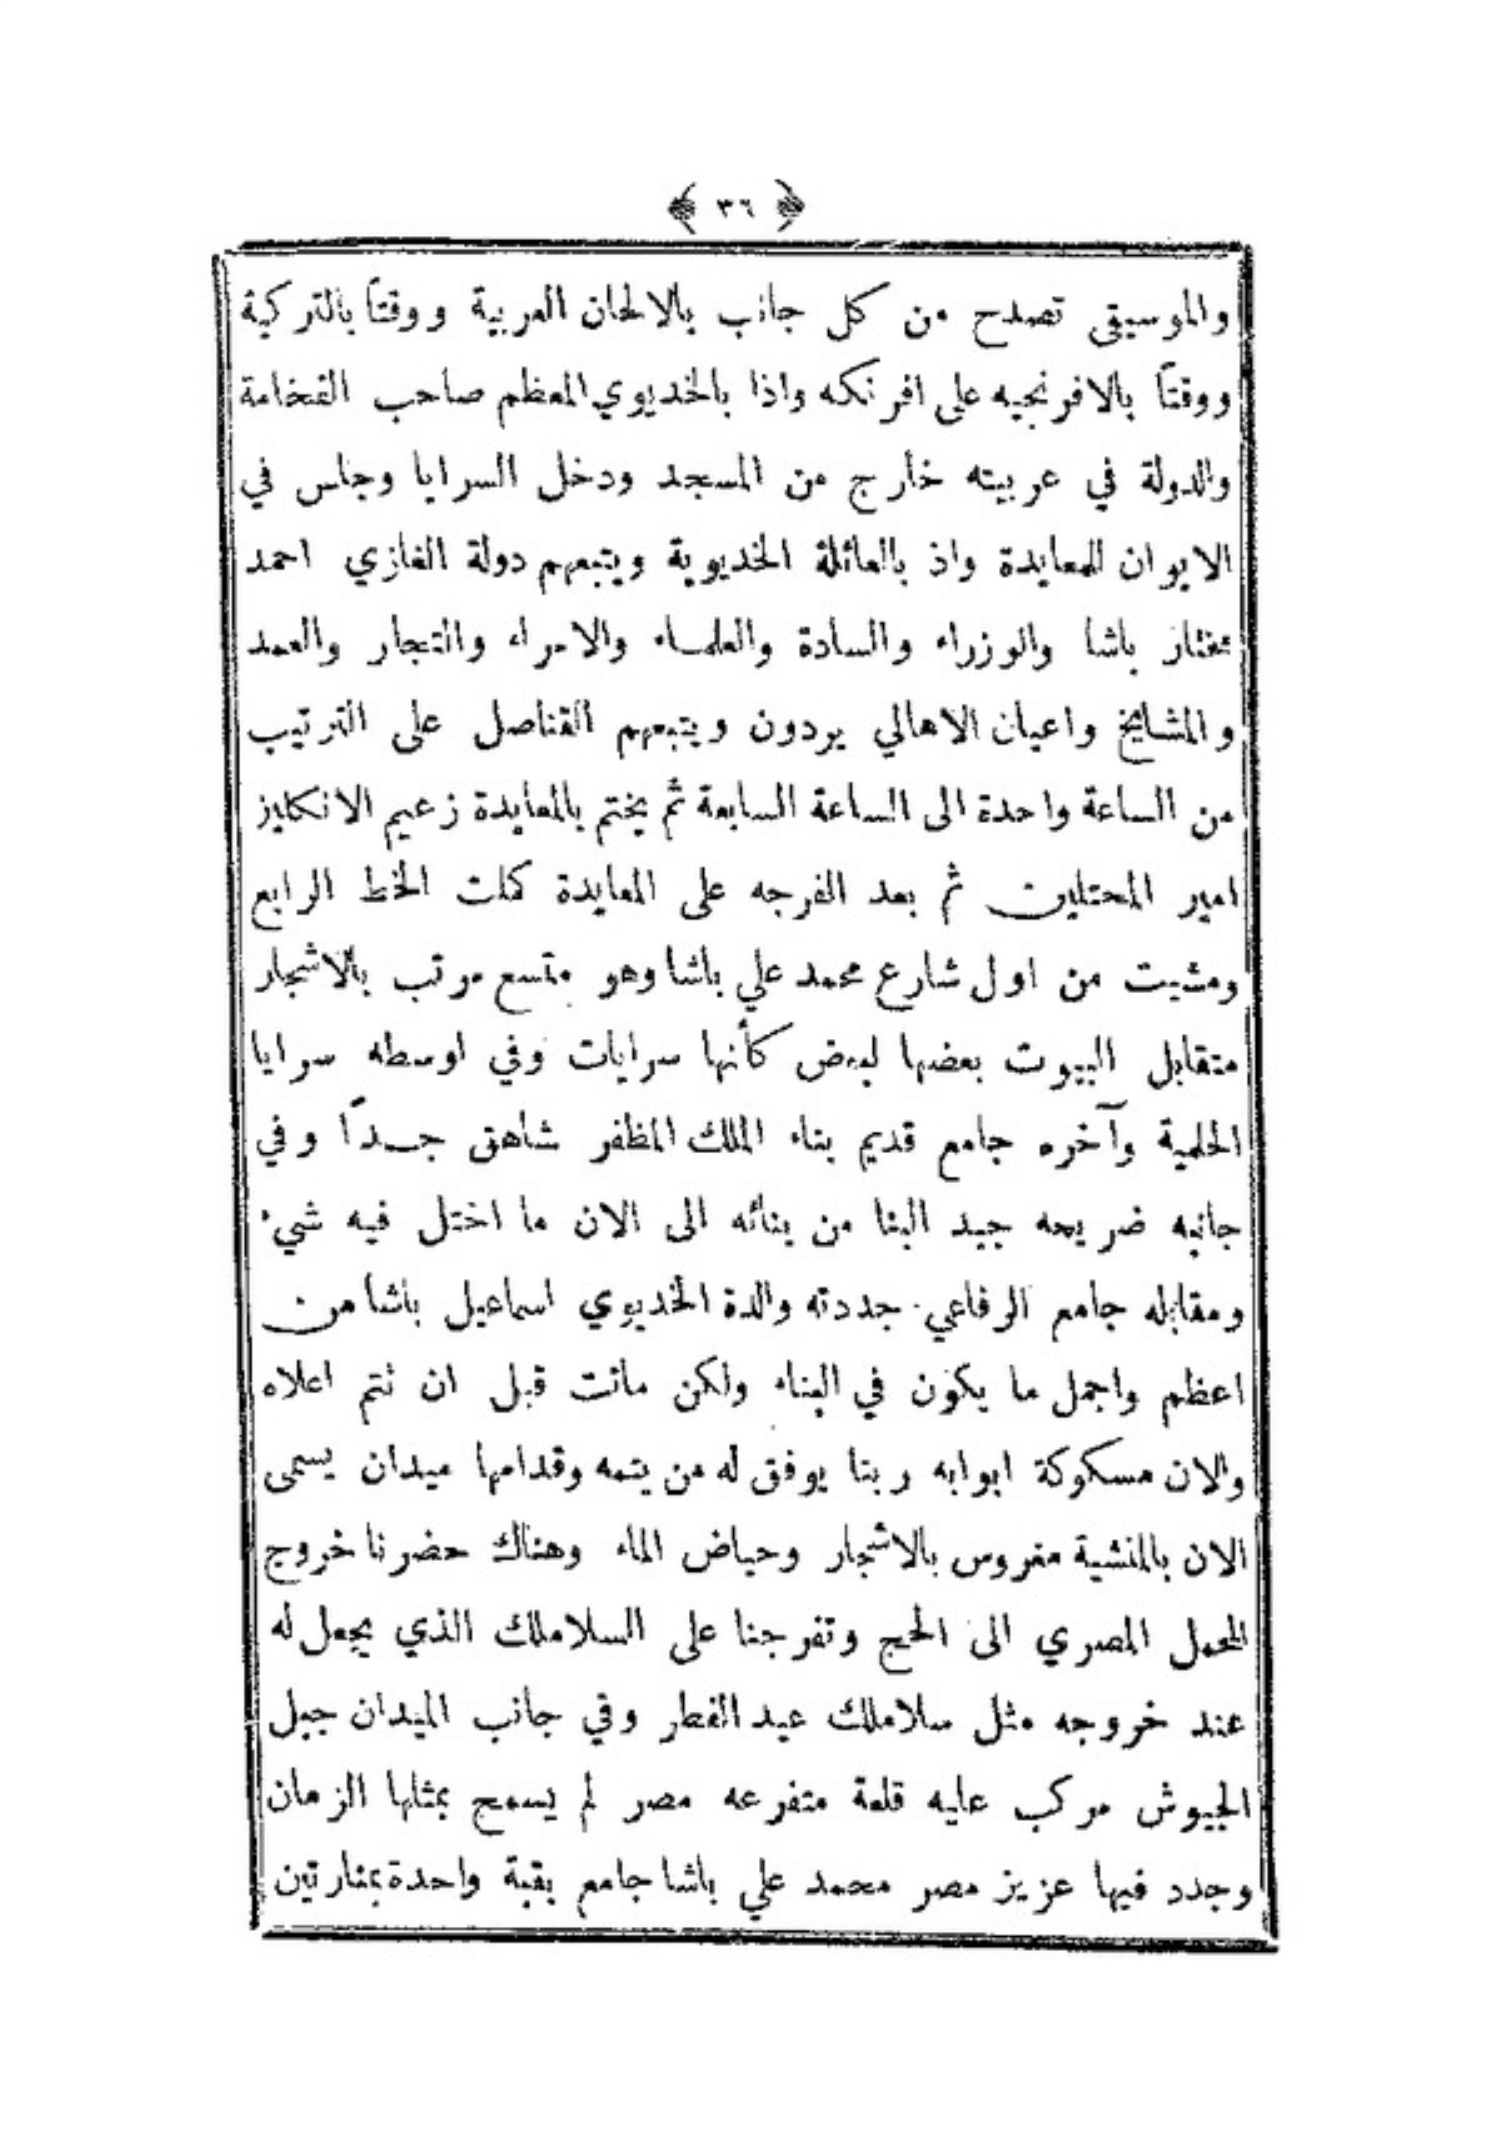 ﴿ ٣٦ ﴾
والموسيقى تصدح من كل جانب بالالحان العربية ووقتاً بالتركية
ووقتاً بالافرنجيه على افرنكه واذا بالخديوي المعظم صاحب الفخامة
والدولة في عربيته خارج من المسجد ودخل السرايا وجلس في
الايوان للمعايدة واذ بالعائلة الخديوية ويتبعهم دولة الغازي احمد
مختار باشا والوزراء والسادة والعلماء والامراء والتجار والعمد
والمشايخ واعيان الاهالي يردون ويتبعهم القناصل على الترتيب
من الساعة واحدة الى الساعة السابعة ثم يختم بالمعايدة زعيم الانكليز
امير المحتلين ثم بعد الفرجه على المعايدة كملت الخط الرابع
ومشيت من اول شارع محمد علي باشا وهو متسع مرتب بالاشجار
متقابل البيوت بعضها لبعض كأنها سرايات وفي اوسطه سرايا
الحلمية وآخره جامع قديم بناء الملك المظفر شاهق جداً وفي
جانبه ضريحه جيد البنا من بنائه الى الان ما اختل فيه شيء
ومقابله جامع الرفاعي جددته والدة الخديوي اسماعيل باشا من
اعظم واجمل ما يكون في البناء ولكن ماتت قبل ان تتم اعلاه
والان مسكوكة ابوابه ربنا يوفق له من يتمه وقدامها ميدان يسمى
الان بالمنشية مغروس بالاشجار وحياض الماء وهناك حضرنا خروج
المحمل المصري الى الحج وتفرجنا على السلاملك الذي يجعل له
عند خروجه مثل سلاملك عيد الفطر وفي جانب الميدان جبل
الجيوش مركب عليه قلعة متفرعه مصر لم يسمح بمثلها الزمان
وجدد فيها عزيز مصر محمد علي باشا جامع بقبة واحدة بمنارتين